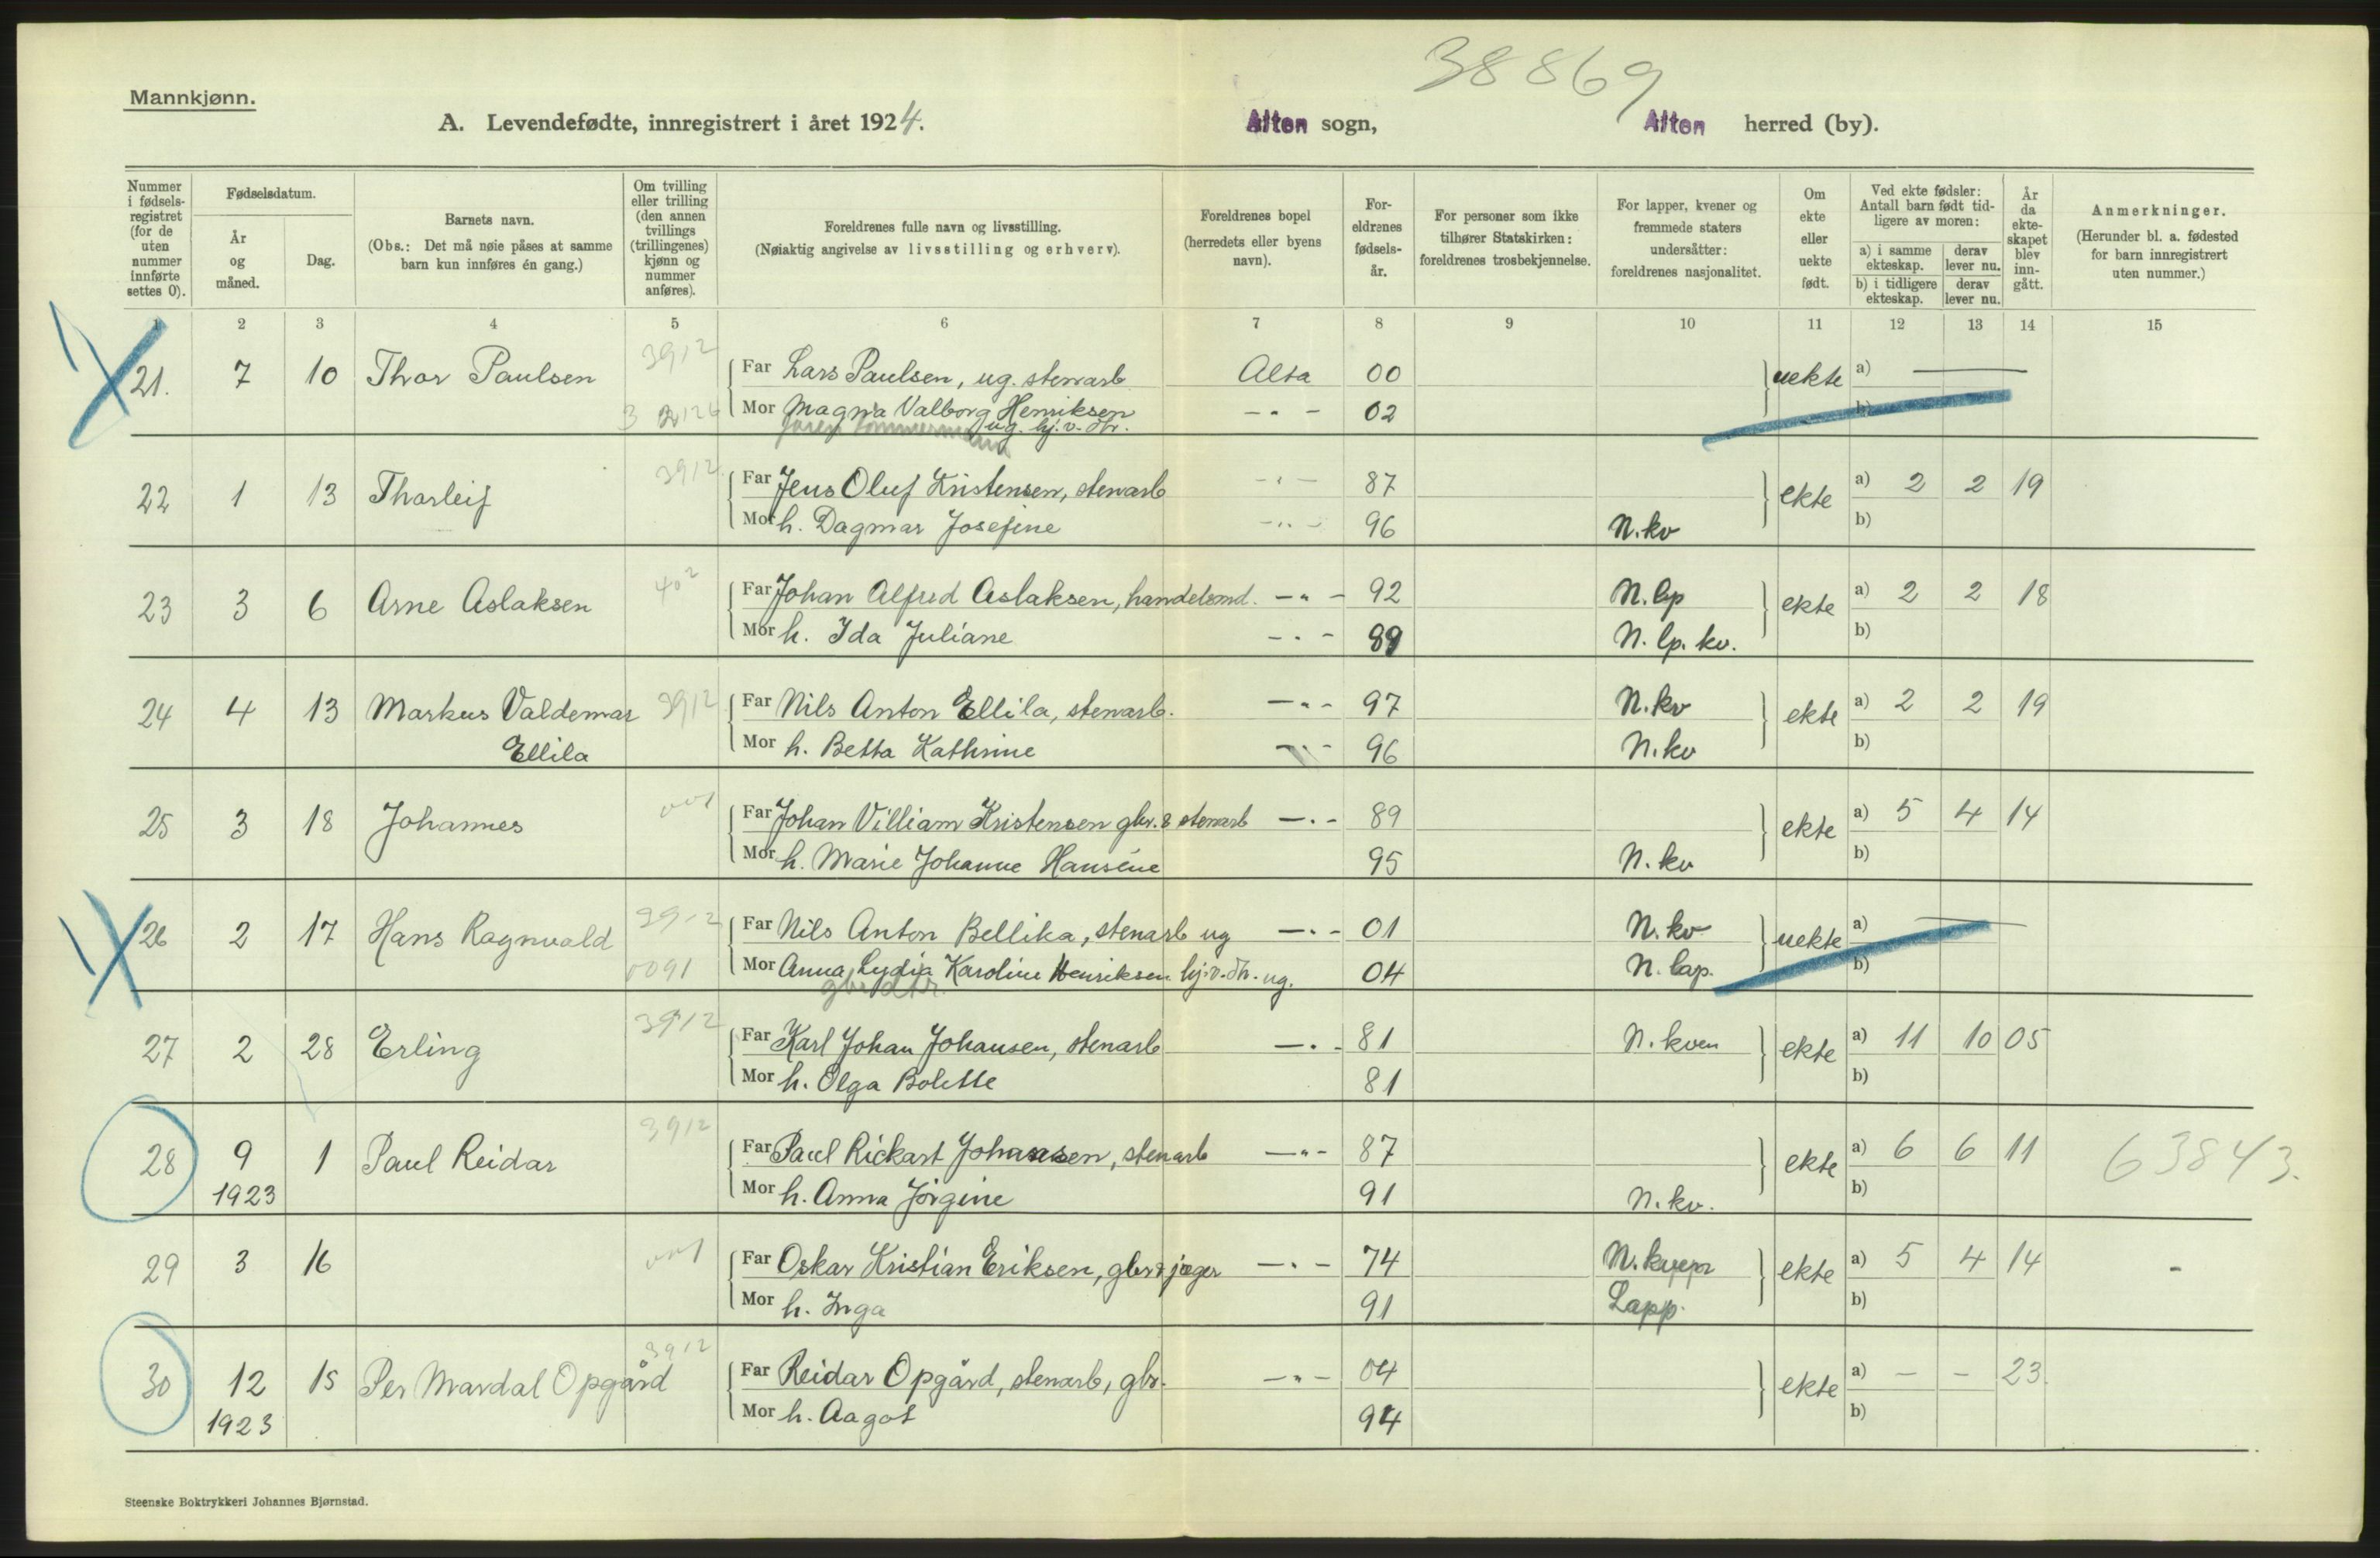 38869
Mannkjønn.
A. Levendefødte, innregistrert i året 1924. Alten sogn, Alten herred (by).
Nummer i fødselsregistret (for de uten nummer innførte settes 0).
Fødselsdatum.
År og måned.
Dag.
Barnets navn.
(Obs.: Det må nøie påses at samme barn kun innføres én gang.)
Om tvilling eller trilling (den annen tvillings (trillingenes) kjønn og nummer anføres).
Foreldrenes fulle navn og livsstilling.
(Nøiaktig angivelse av livsstilling og erhverv).
Foreldrenes bopel (herredets eller byens navn).
Foreldrenes fødselsår.
For personer som ikke tilhører Statskirken: foreldrenes trosbekjennelse.
For lapper, kvener og fremmede staters undersåtter: foreldrenes nasjonalitet.
Om ekte eller uekte født.
Ved ekte fødsler: Antall barn født tidligere av moren:
a) i samme ekteskap. derav lever nu.
b) i tidligere ekteskap. derav lever nu.
År da ekteskapet blev inngått.
Anmerkninger.
(Herunder bl. a. fødested for barn innregistrert uten nummer.)
1 2 3 4 5 6 7 8 9 10 11 12 13 14 15
21. 7 10 Thor Paulsen 3912 Far Lars Paulsen, ug. stenarb Alta 00 uekte a) —
Mor Magna Valborg Henriksen -"- 02 b)
ug. hj. v. dtr.
22 1 13 Thorleif 3912 Far Jens Oluf Kristensen, stenarb -"- 87 ekte a) 2 2 19
Mor h. Dagmar Josefine -"- 96 N.kv b)
23 3 6 Arne Aslaksen 402 Far Johan Alfred Aslaksen, handelsmd. -"- 92 N.lp ekte a) 2 2 18
Mor h. Ida Juliane -"- 89 N. lp. kv. b)
24 4 13 Markus Valdemar 3912 Far Nils Anton Ellila, stenarb. -"- 97 N.kv ekte a) 2 2 19
Ellila Mor h. Betta Kathrine -"- 96 N.kv b)
25 3 18 Johannes Far Johan Villiam Kristensen gbr. & stenarb -"- 89 ekte a) 5 4 14
Mor h. Marie Johanne Hansine 95 N.kv b)
26 2 17 Hans Ragnvald 3912 Far Nils Anton Bellika, stenarb ug -"- 01 N.kv uekte a) —
0091 Mor Anna Lydia Karoline Henriksen hj.v.dtr. ug. 04 N.lap. b)
gbr dtr.
27 2 28 Erling 3912 Far Karl Johan Johansen, stenarb -"- 81 N.kven ekte a) 11 10 05
Mor h. Olga Bolette 81 b)
28 9 1 Paul Reidar 3912 Far Paul Rickart Johansen, stenarb -"- 87 ekte a) 6 6 11 63843.
1923 Mor h. Anna Jørgine 91 N.kv. b)
29 3 16 Far Oskar Kristian Eriksen, gbr & jæger -"- 74 ekte a) 5 4 14 -
Mor h. Inga 91 Lapp. b)
30 12 15 Per Mardal Opgård 3912 Far Reidar Opgård, stenarb, gbr. -"- 04 ekte a) - - 23.
1923 Mor h. Aagot 94 b)
Steenske Boktrykkeri Johannes Bjørnstad.